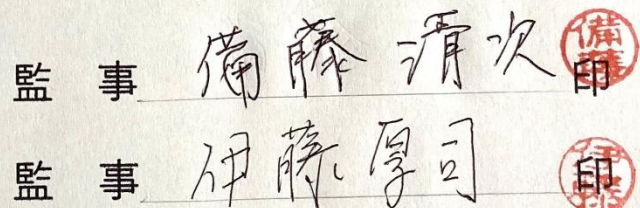 監 事 備藤 清次 印
監 事 伊藤 厚司 印